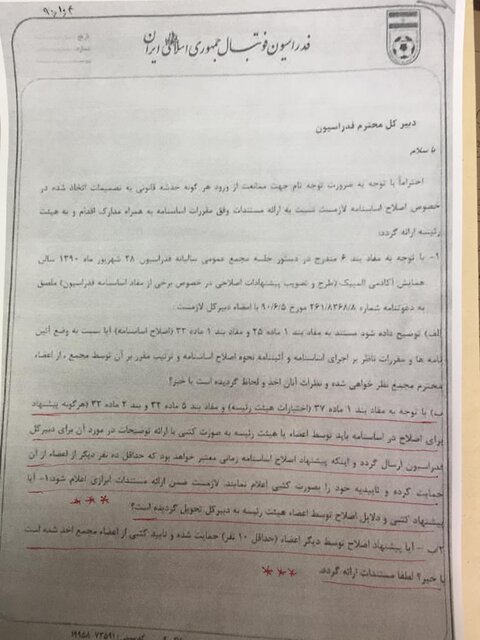 ۹۰,۱۰,۴
فدراسیون فوتبال جمهوری اسلامی ایران
تاریخ
شماره
دبیر کل محترم فدراسیون
با سلام
احتراماً با توجه به ضرورت توجه تام جهت ممانعت از ورود هر گونه خدشه قانونی به تصمیمات اتخاذ شده در
خصوص اصلاح اساسنامه لازمست نسبت به ارائه مستندات وفق مقررات اساسنامه به همراه مدارک اقدام و به هیئت
رئیسه ارائه گردد:
۱- با توجه به مفاد بند ۶ مندرج در دستور جلسه مجمع عمومی سالیانه فدراسیون ۲۸ شهریور ماه ۱۳۹۰ سالن
همایش آکادمی المپیک (طرح و تصویب پیشنهادات اصلاحی در خصوص برخی از مفاد اساسنامه فدراسیون) ملصق
به دعوتنامه شماره ۲۶۱/۸۳۶۸/۸ مورخ ۹۰/۶/۵ با امضاء دبیرکل لازمست:
الف) توضیح داده شود مستند به مفاد بند ۱ ماده ۲۵ و مفاد بند ۱ ماده ۳۲ (اصلاح اساسنامه) آیا نسبت به وضع آئین
نامه ها و مقررات ناظر بر اجرای اساسنامه و آئیننامه نحوه اصلاح اساسنامه و ترتیب مقرر بر آن توسط مجمع، از اعضاء
محترم مجمع نظر خواهی شده و نظرات آنان اخذ و لحاظ گردیده است یا خیر؟
ب) با توجه به مفاد بند ۱ ماده ۳۷ (اختیارات هیئت رئیسه) و مفاد بند ۵ ماده ۳۲ و بند ۲ ماده ۳۲ (هرگونه پیشنهاد
برای اصلاح در اساسنامه باید توسط اعضاء یا هیئت رئیسه به صورت کتبی با ارائه توضیحات در مورد آن برای دبیرکل
فدراسیون ارسال گردد و اینکه پیشنهاد اصلاح اساسنامه زمانی معتبر خواهد بود که حداقل ده نفر دیگر از اعضاء از آن
حمایت کرده و تائیدیه خود را بصورت کتبی اعلام نمایند. لازمست ضمن ارائه مستندات ابرازی اعلام شود: ۱- آیا
پیشنهاد کتبی و دلایل اصلاح توسط اعضاء هیئت رئیسه به دبیرکل تحویل گردیده است؟
۲/ب - آیا پیشنهاد اصلاح توسط دیگر اعضاء (حداقل ۱۰ نفر) حمایت شده و تایید کتبی از اعضاء مجمع اخذ شده است
یا خیر؟ لطفا مستندات ارائه گردد.
۱۹۹۵۸-۷۳۵۹۱